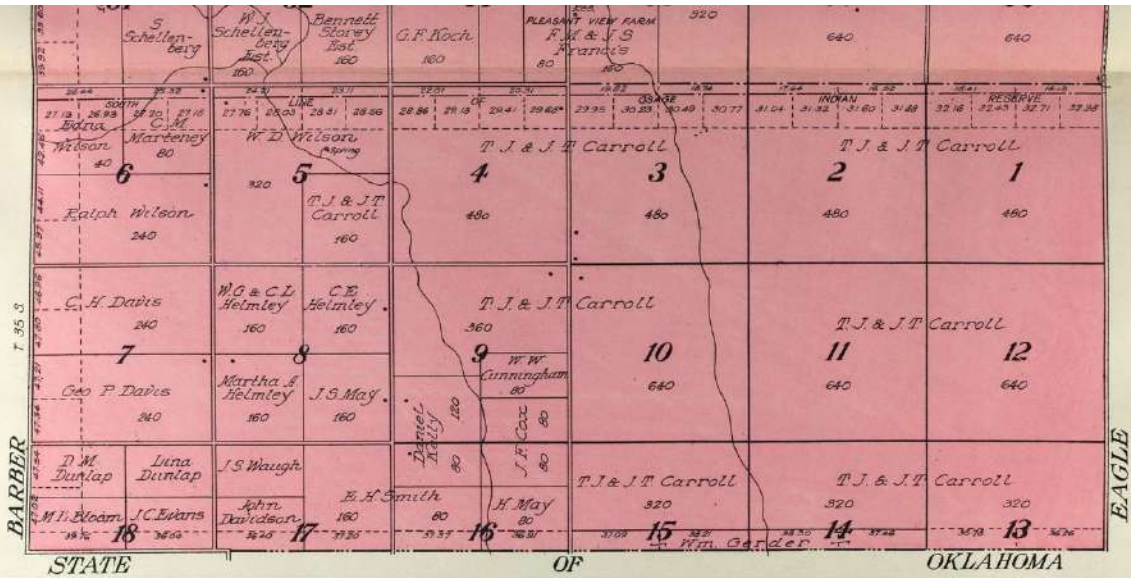 S
Schellen-
berg
W. J.
Schellen-
berg
Est.
160
Bennett
Storey
Est.
160
G. F. Koch
160
PLEASANT VIEW FARM
F. M & J. S
Francis
80
160
320
640
640
SOUTH
LINE
OF
OSAGE
INDIAN
RESERVE
27.13 26.98 27.20 27.15
27.76 28.03 28.31 28.56
28.86 29.13 29.41 29.68
29.95 30.23 30.49 30.77
31.04 31.32 31.60 31.88
32.16 32.43 32.71 32.98
Edna
Wilson
40
C. M.
Marteney
80
6
Ralph Wilson
240
W. D. Wilson
Spring
320
5
T. J. & J. T.
Carroll
160
T. J. & J. T. Carroll
4
480
3
480
T. J. & J. T. Carroll
2
480
1
480
T 35 S
C. H. Davis
240
7
Geo P. Davis
240
W. G & C. L
Helmley
160
C. E.
Helmley
160
8
Martha A
Helmley
160
J. S. May
160
T. J. & J. T. Carroll
360
9
W. W.
Cunningham
80
Daniel
Kelly
120
80
J. F. Cox
80
80
10
640
T. J. & J. T. Carroll
11
640
12
640
BARBER
EAGLE
D. M.
Dunlap
Lina
Dunlap
M L Bloam
J. C. Evans
18
39.76
36.04
J. S. Waugh
John
Davidson
17
E. H. Smith
160
80
37.20
37.37
H. May
80
16
36.91
T. J & J. T. Carroll
320
15
37.09
38.21
Wm. Gerder
T. J. & J. T. Carroll
320
14
38.30
320
13
STATE
OF
OKLAHOMA